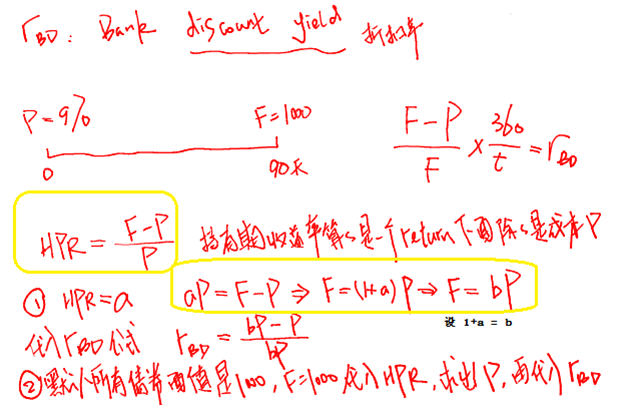 r_BD: Bank discount yield 折扣率
P=970 F=1000
0 90天
(F-P)/F × 360/t = r_BD
HPR = (F-P)/P 持有期收益率算的是一个return 下面除的是成本P
① HPR=a aP=F-P ⇒ F=(1+a)P ⇒ F=bP
设 1+a = b
代入r_BD公式 r_BD = (bP-P)/bP
②默认所有债券面值是1000, F=1000代入HPR, 求出P, 再代入r_BD